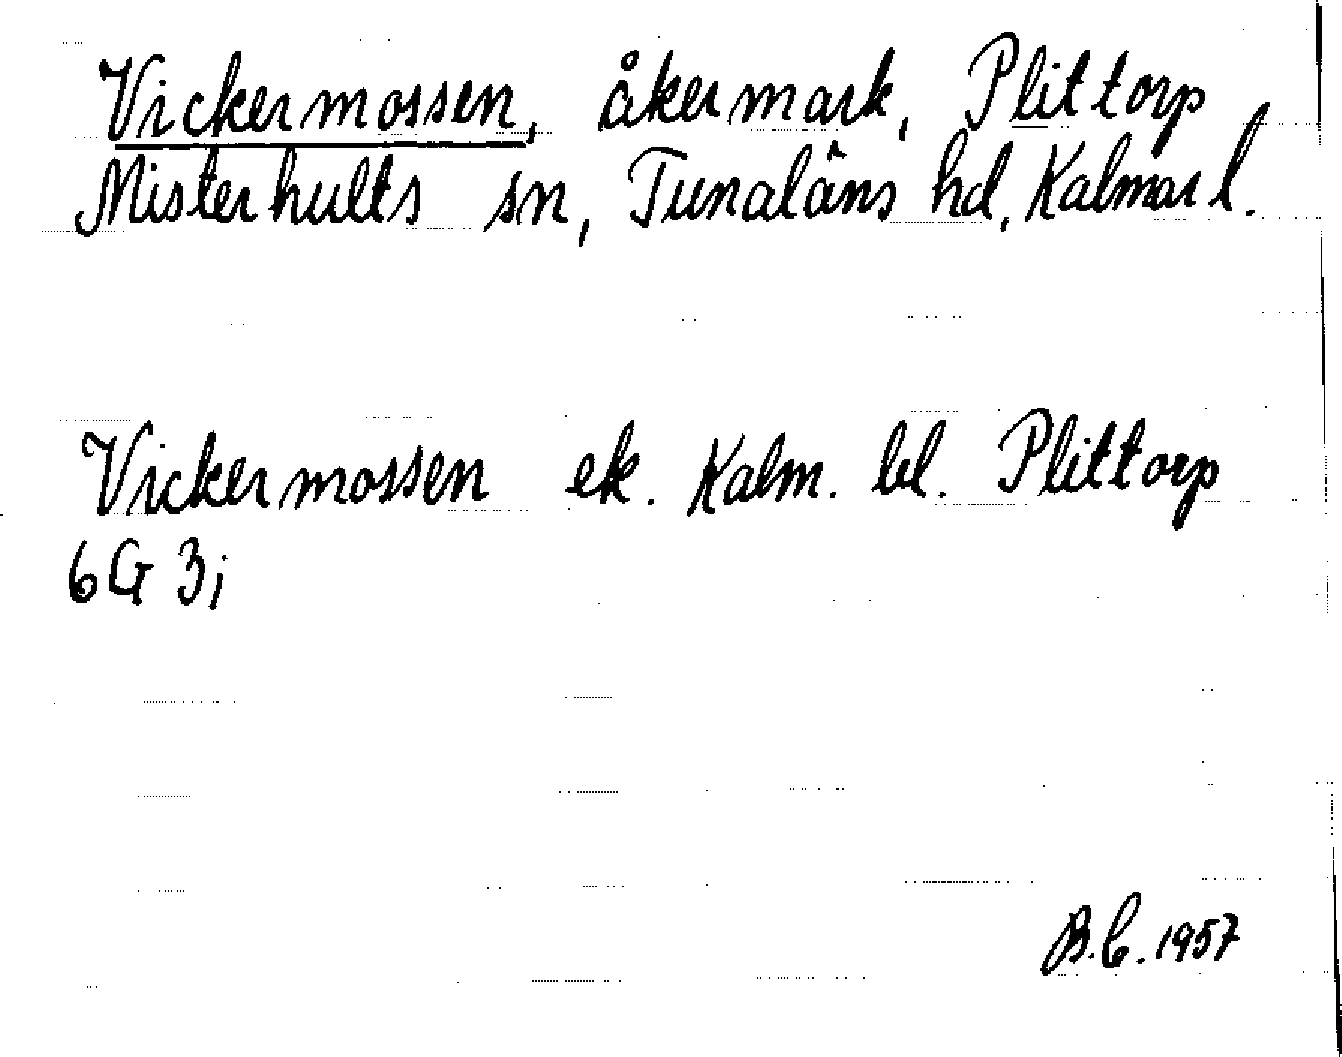 Vickermossen, åkermark, Plittorp
Misterhults sn, Tunaläns hd, Kalmar l.
Vickermossen ek. Kalm. bl. Plittorp
6G 3i
B.C. 1957